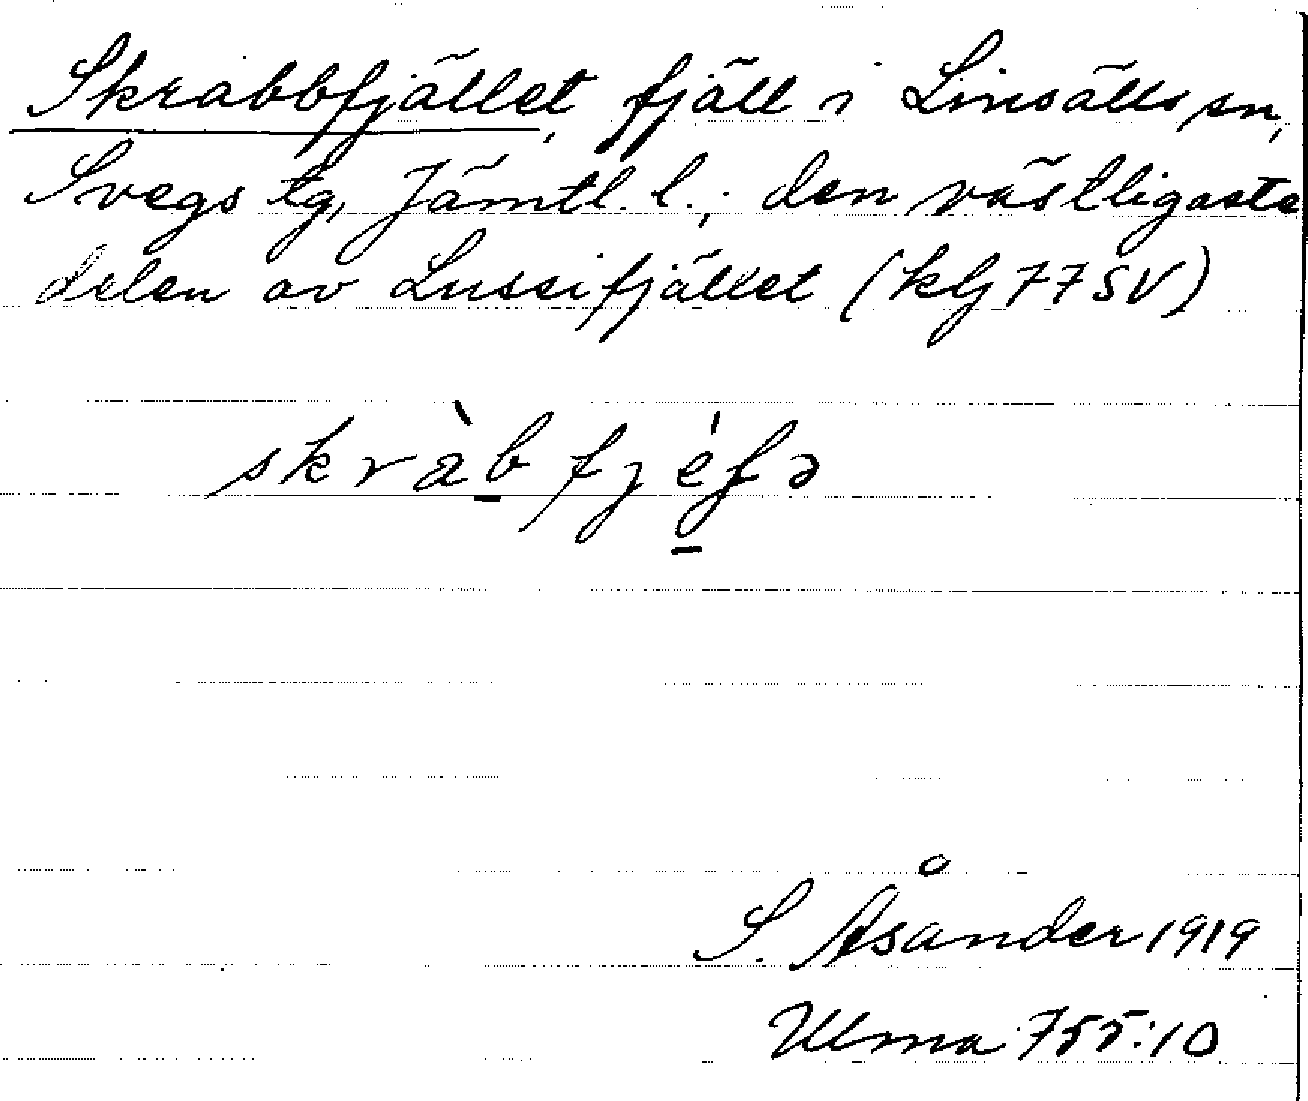 Skrabbfjället, fjäll i Linsälls sn,
Svegs tg, Jämtl. l.; den västligaste
delen av Lussifjället (kbl 77 SV)
skràb fjéɟə
S. Åsander 1919
Ulma 755:10